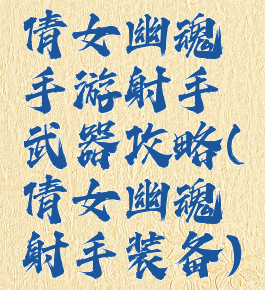 倩女幽魂
手游射手
武器攻略(
倩女幽魂
射手装备)